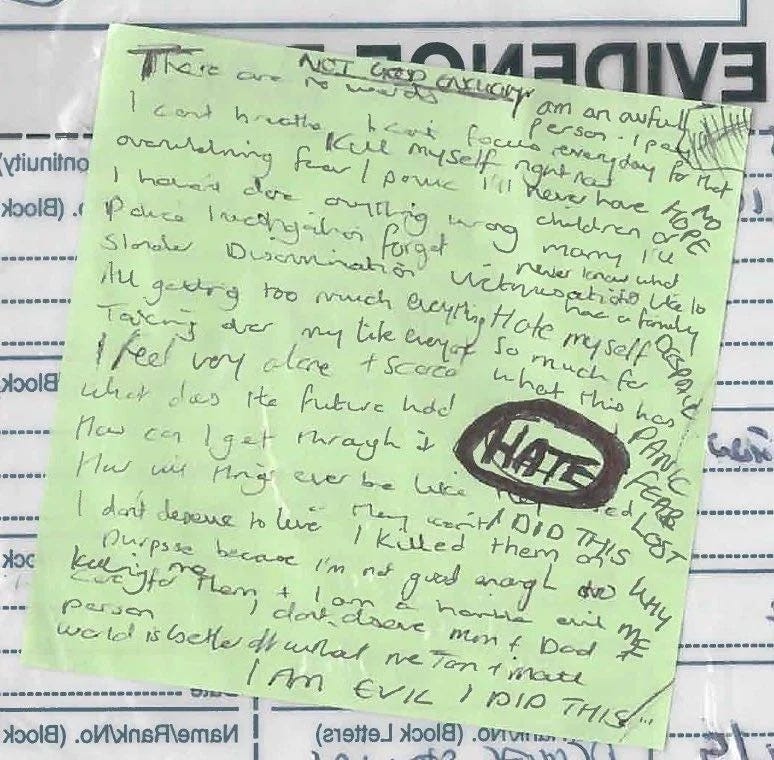 EVIDENCE
NOT GOOD ENOUGH
There are no words
I am an awful
person. I pay
everyday for that
I can't breathe I can't focus
Kill myself right now
overwhelming fear / panic
I'll never have
NO
HOPE
children or
marry I'll
never know what
like to
have a family
I haven't done anything wrong
Police Investigation forget
Slander Discrimination
All getting too much everything
Hate myself
so much for
what this has
DESPAIR
Taking over my life everyday
I feel very alone + scared
What does the future hold
How can I get through it
HATE
PANIC
FEAR
LOST
How will things ever be like
I DID THIS
I don't deserve to live
I killed them on
purpose because I'm not good enough to
care for them + I am a horrible evil
person
WHY
ME
killing me
I don't deserve Mum + Dad +
world is better off without me
I AM EVIL I DID THIS
Continuity)
(Block
Block
Name/Rank/No. (Block
Rank/No. (Block Letters)